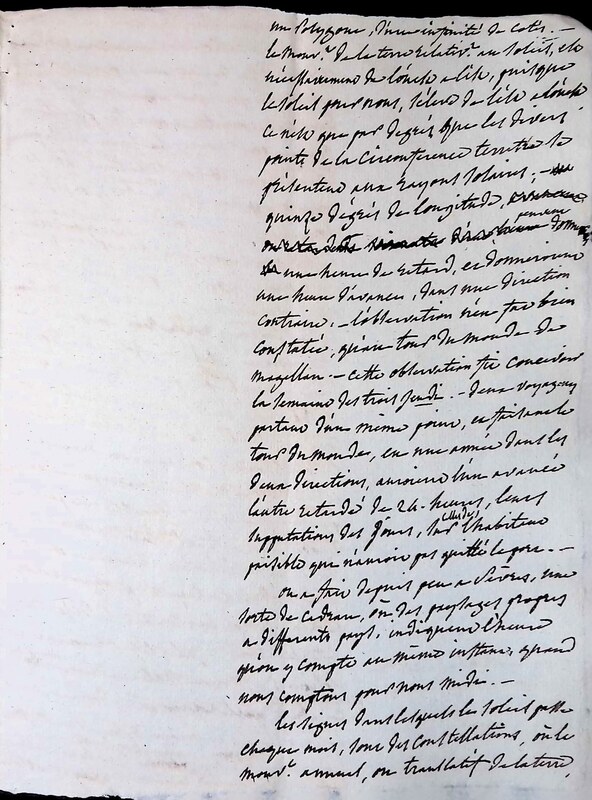 un polygone, d'une infinité de cotés. —
le mouv.t de la terre relativ.t au soleil, est
nécessairement de l'ouest a l'est, puisque
le soleil pour nous, s'élève de l'est a l'ouest
ce n'est que par degrés que les divers
points de la circonférence terrestre se
présentent aux rayons solaires. —
quinze dégrés de longitude,
donnent
une heure de retard, et donneroient
une heure d'avance, dans une direction
contraire. — l'observation n'en fut bien
constatée, qu'au tour du monde de
magellan. — cette observation fit concevoir
la semaine des trois jeudi. — deux voyageurs
partant d'un même point, et faisant le
tour du monde, en une année dans les
deux directions, auroient l'un avancé
l'autre retardé de 24. heures, leurs
supputations des jours, sur celles de l'habitant
paisible qui n'auroit pas quitté le port. —
on a fait depuis peu a Sèvres, une
sorte de cadran, où des paysages propres
a différents pays, indiquent l'heure
qu'on y compte au même instant, quand
nous comptons pour nous midi. —
les signes dans lesquels le soleil passe
chaque mois, sont des constellations, où le
mouv.t annuel, ou translatif de la terre,